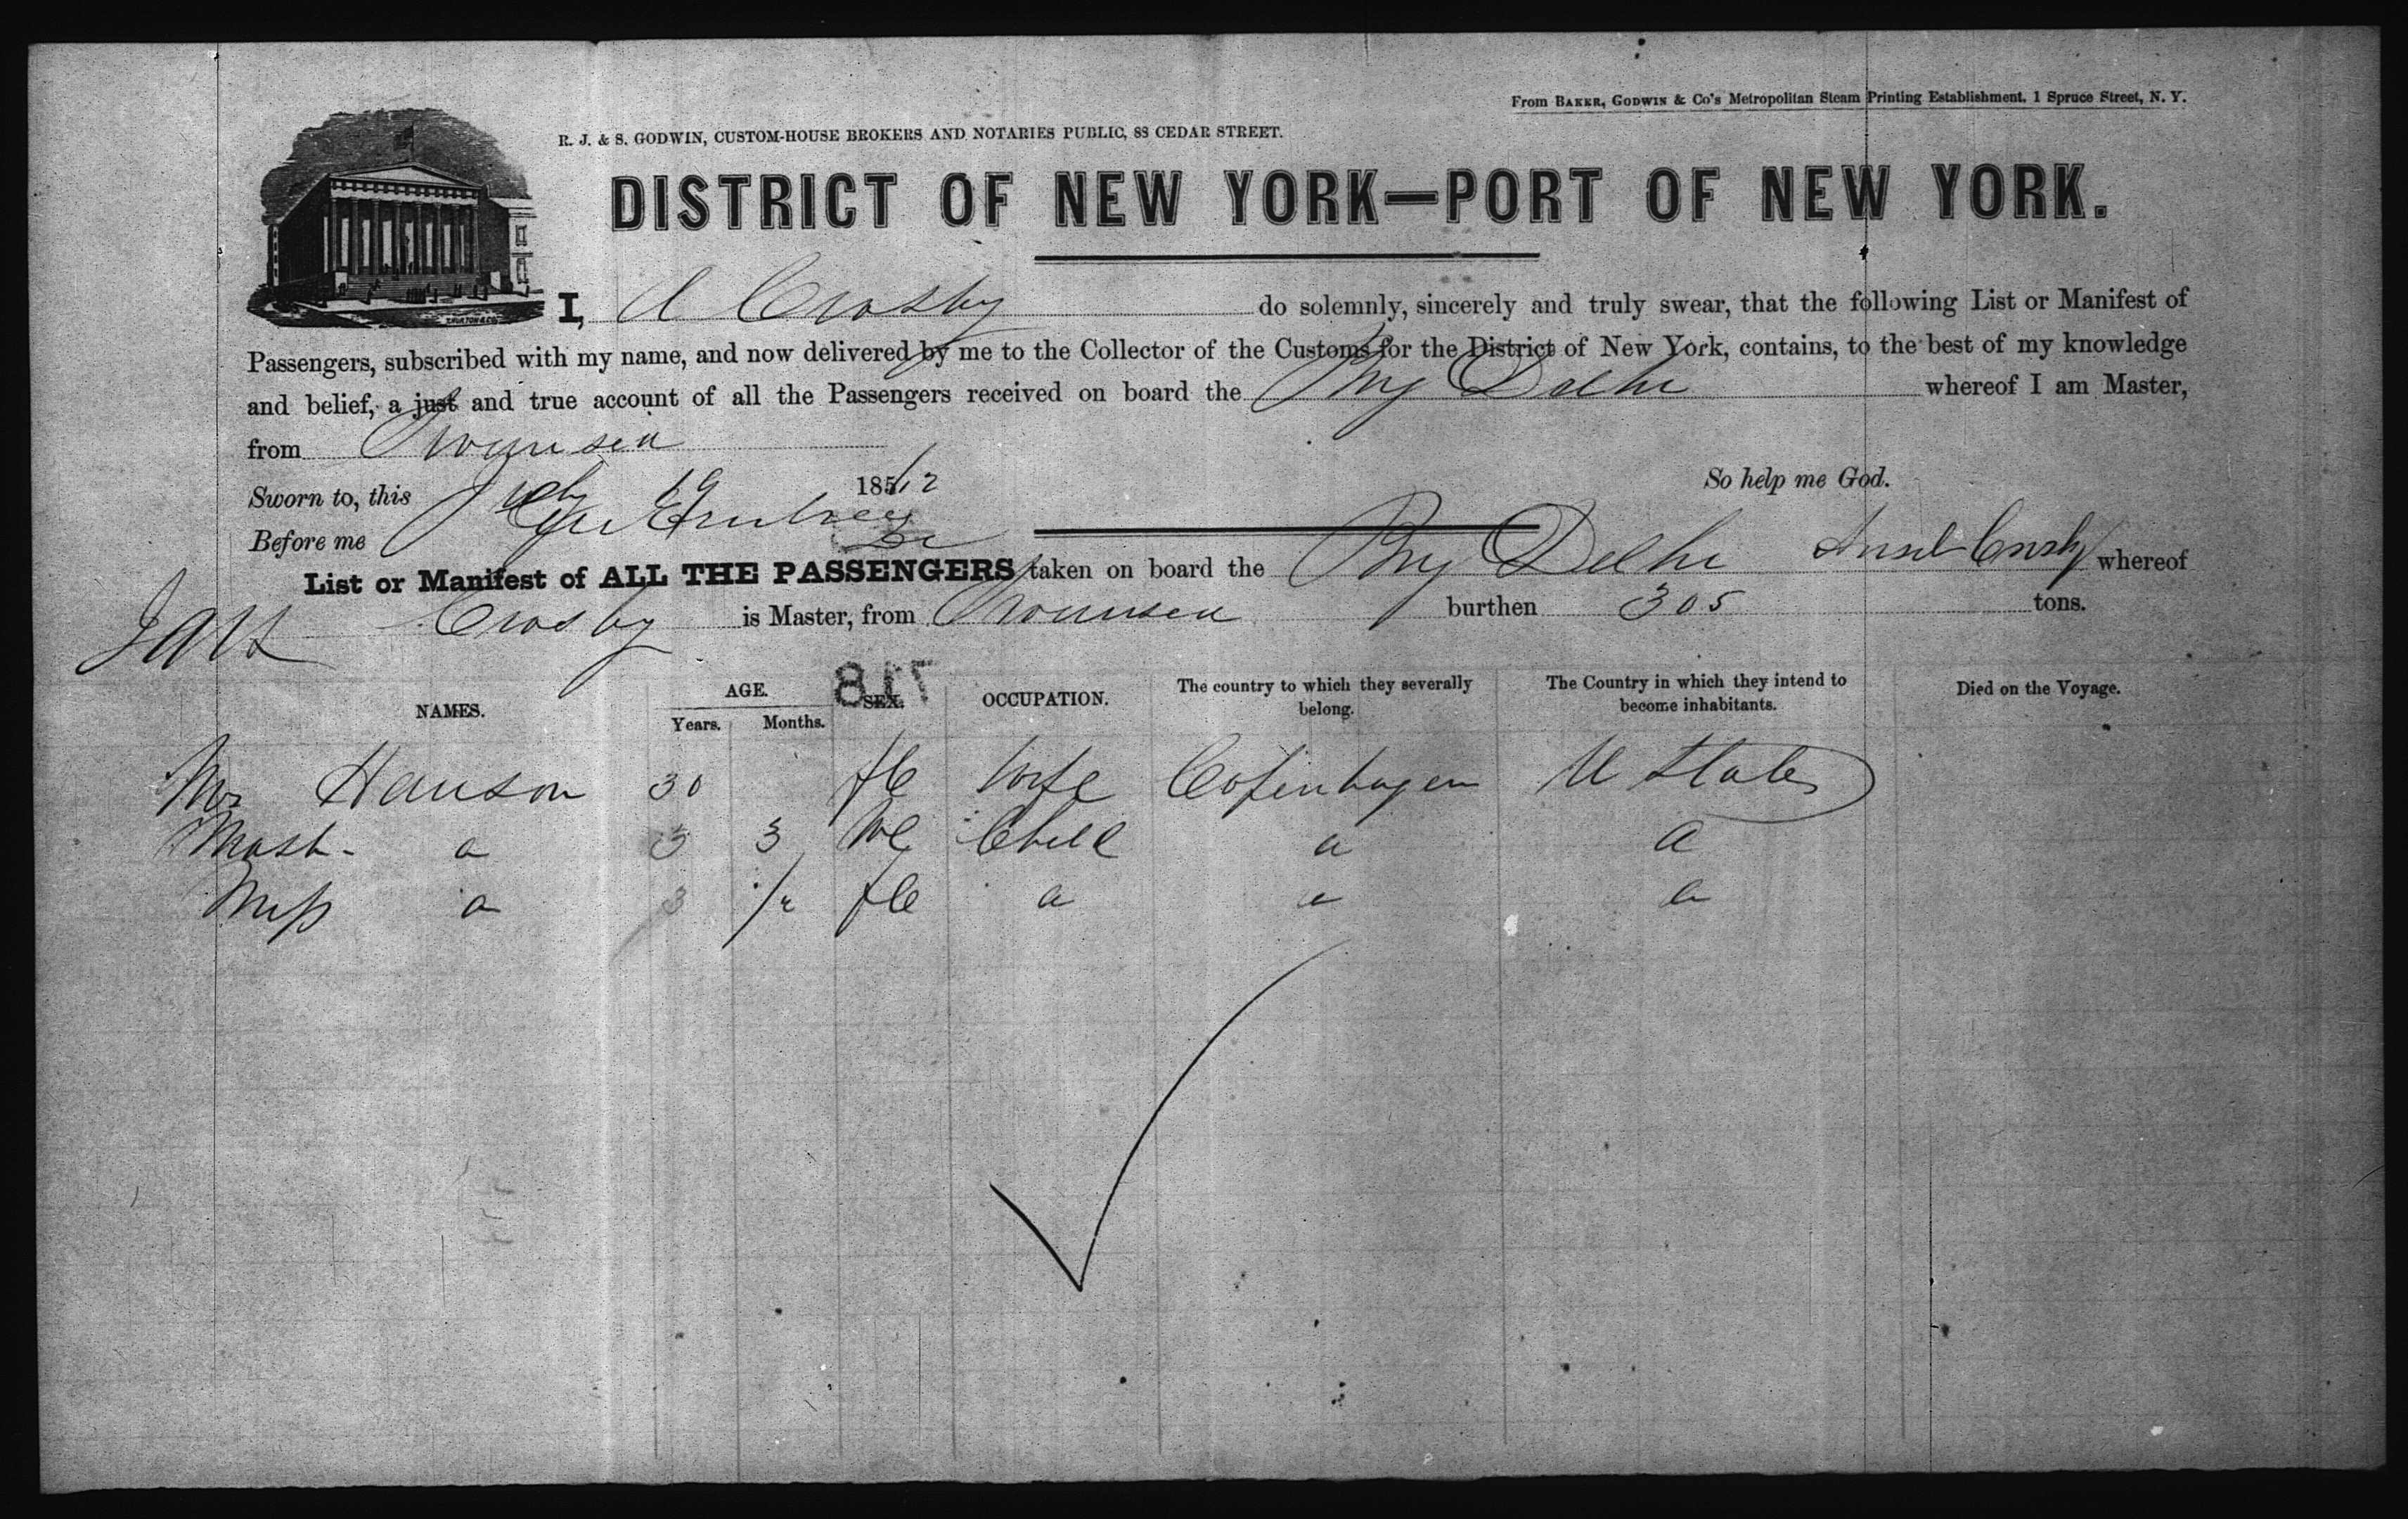 From BAKER, GODWIN & Co's Metropolitan Steam Printing Establishment, 1 Spruce Street, N. Y.
R. J. & S. GODWIN, CUSTOM-HOUSE BROKERS AND NOTARIES PUBLIC, 88 CEDAR STREET.
DISTRICT OF NEW YORK—PORT OF NEW YORK.
I, A Crosby do solemnly, sincerely and truly swear, that the following List or Manifest of
Passengers, subscribed with my name, and now delivered by me to the Collector of the Customs for the District of New York, contains, to the best of my knowledge
and belief, a just and true account of all the Passengers received on board the Brig Delhi whereof I am Master,
from Swansea
Sworn to, this July 19 1852 So help me God.
Before me
List or Manifest of ALL THE PASSENGERS taken on board the Brig Delhi Ansel Crosby whereof
Crosby is Master, from Swansea burthen 305 tons.
718
NAMES. AGE. SEX. OCCUPATION. The country to which they severally belong. The Country in which they intend to become inhabitants. Died on the Voyage.
Years. Months.
Mrs Hanson 30 fe Wife Copenhagen U States
Mast- a 3 3 Me Child a a
Miss a 3 fe a a a